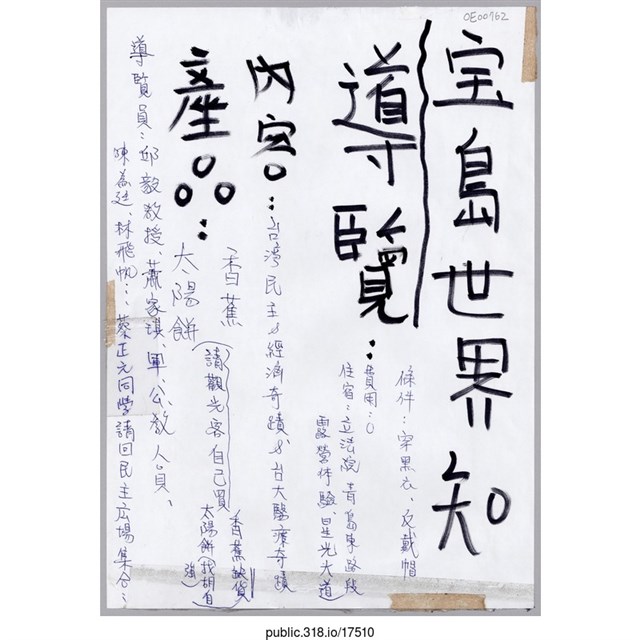 OE00762
宝島世界知
導覽：
條件：穿黑衣、反戴帽
費用：0
住宿：立法院青島東路段
露營体驗、星光大道
內容：台湾民主&經濟奇蹟、&台大醫療奇蹟
產品：
香蕉
太陽餅
(請觀光客自己買
香蕉缺貨
太陽餅找胡自強)
導覽員：邱毅教授、蕭家淇、軍、公、教人員、
陳為廷、林飛帆…蔡正元同營請回民主広場集合…
public.318.io/17510